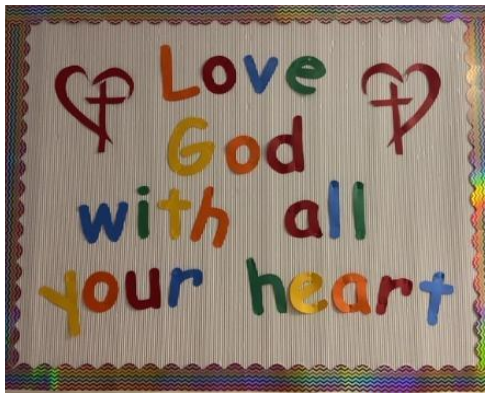 Love
God
with all
your heart